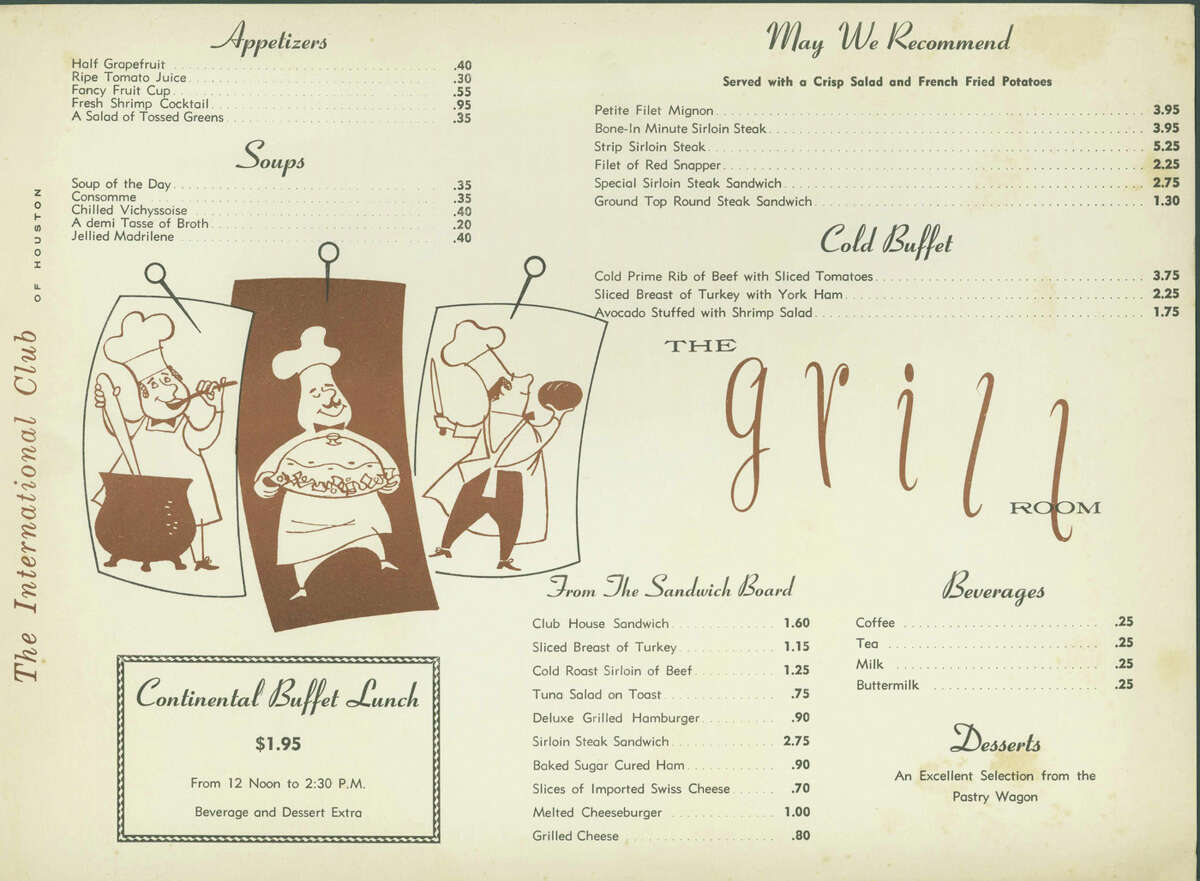 The International Club OF HOUSTON
Appetizers
Half Grapefruit .40
Ripe Tomato Juice .30
Fancy Fruit Cup .55
Fresh Shrimp Cocktail .95
A Salad of Tossed Greens .35
Soups
Soup of the Day .35
Consomme .35
Chilled Vichyssoise .40
A demi Tasse of Broth .20
Jellied Madrilene .40
Continental Buffet Lunch
$1.95
From 12 Noon to 2:30 P.M.
Beverage and Dessert Extra
May We Recommend
Served with a Crisp Salad and French Fried Potatoes
Petite Filet Mignon 3.95
Bone-In Minute Sirloin Steak 3.95
Strip Sirloin Steak 5.25
Filet of Red Snapper 2.25
Special Sirloin Steak Sandwich 2.75
Ground Top Round Steak Sandwich 1.30
Cold Buffet
Cold Prime Rib of Beef with Sliced Tomatoes 3.75
Sliced Breast of Turkey with York Ham 2.25
Avocado Stuffed with Shrimp Salad 1.75
THE
grill
ROOM
From The Sandwich Board
Club House Sandwich 1.60
Sliced Breast of Turkey 1.15
Cold Roast Sirloin of Beef 1.25
Tuna Salad on Toast .75
Deluxe Grilled Hamburger .90
Sirloin Steak Sandwich 2.75
Baked Sugar Cured Ham .90
Slices of Imported Swiss Cheese .70
Melted Cheeseburger 1.00
Grilled Cheese .80
Beverages
Coffee .25
Tea .25
Milk .25
Buttermilk .25
Desserts
An Excellent Selection from the
Pastry Wagon